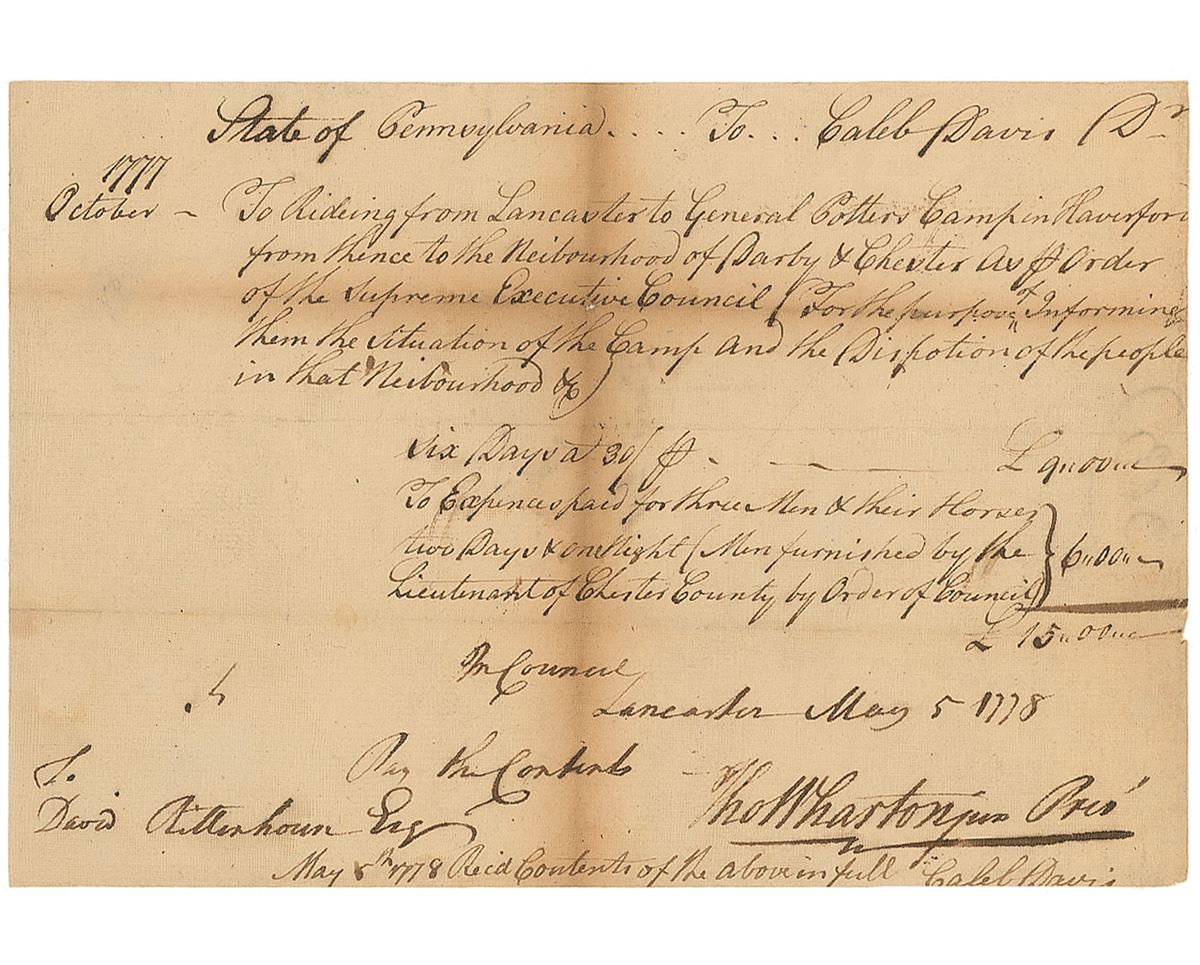 State of Pennsylvania . . . . To . . . Caleb Davis Dr
1777
October – To Rideing from Lancaster to General Potters Camp in Haverford
from thence to the Neibourhood of Darby & Chester As ⅌ Order
of the Supreme Executive Council (For the purpose of Informing
them the Situation of the Camp and the Dispotion of the people
in that Neibourhood &c)
Six Days a 30/ ⅌ . — £ 9"00"
To Expences paid for three Men & their Horses
two Days & one Night (Men furnished by the
Lieutenant of Chester County by Order of Council) } 6"00"
£ 15"00"
In Council
Lancaster May 5 1778
Pay the Contents
To
David Rittenhouse Esq
Tho Wharton jun Pres
May 5th 1778 Recd Contents of the above in full Caleb Davis